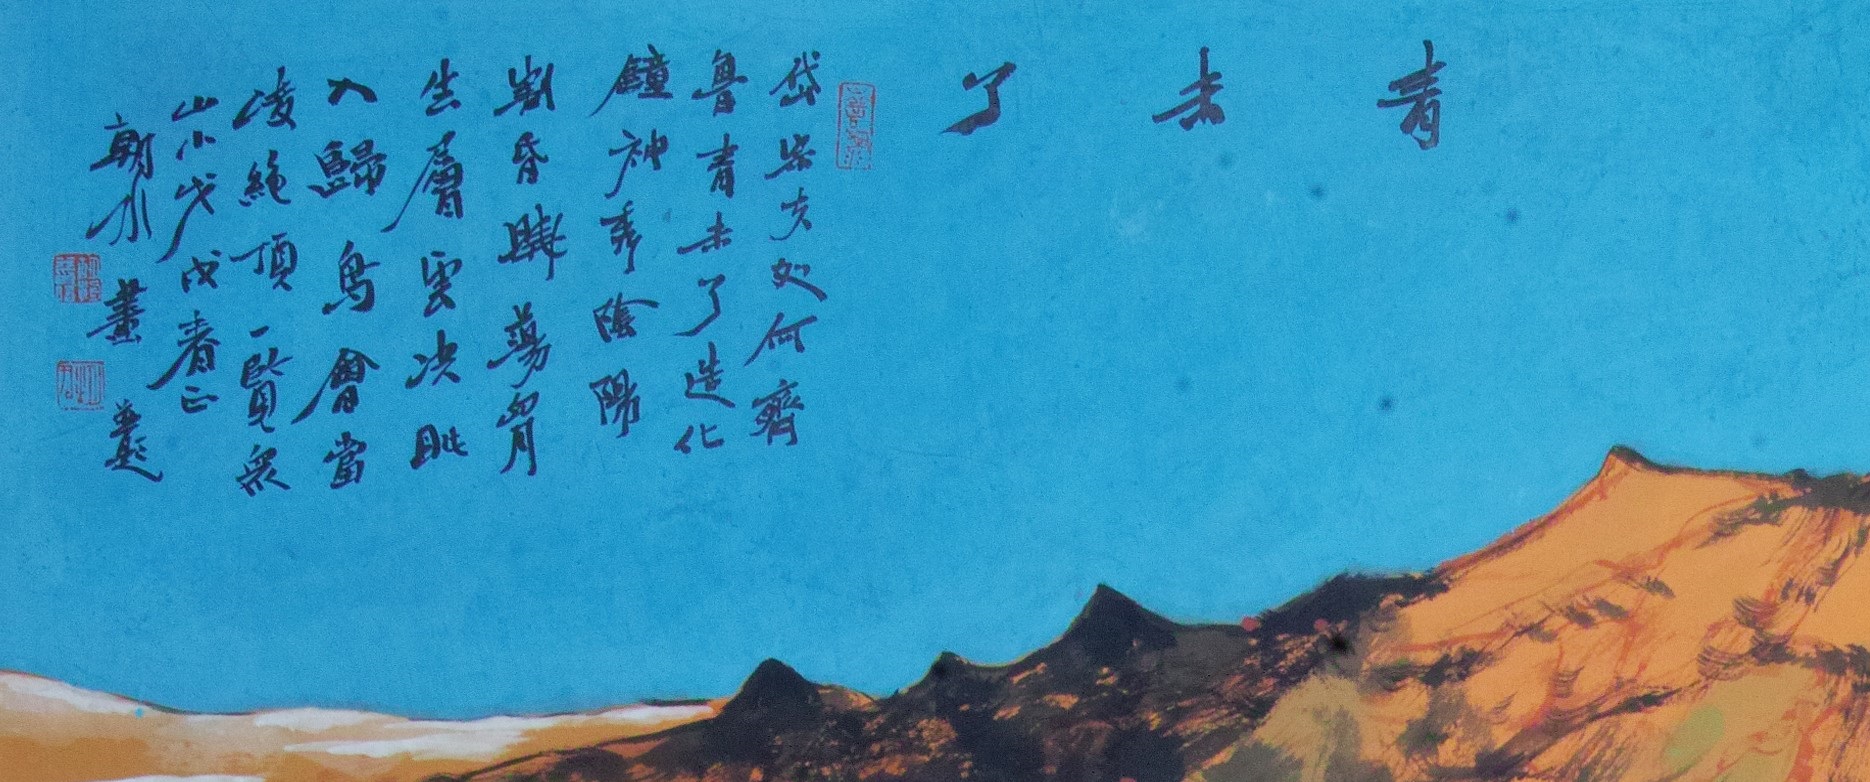 青未了
岱夫如何齊
魯青未了造化
鐘神秀陰陽
割昏曉蕩胷
生層雲决眦
入歸鳥會當
凌絶頂一覽衆
山小戊戌春正
朝水畫並題